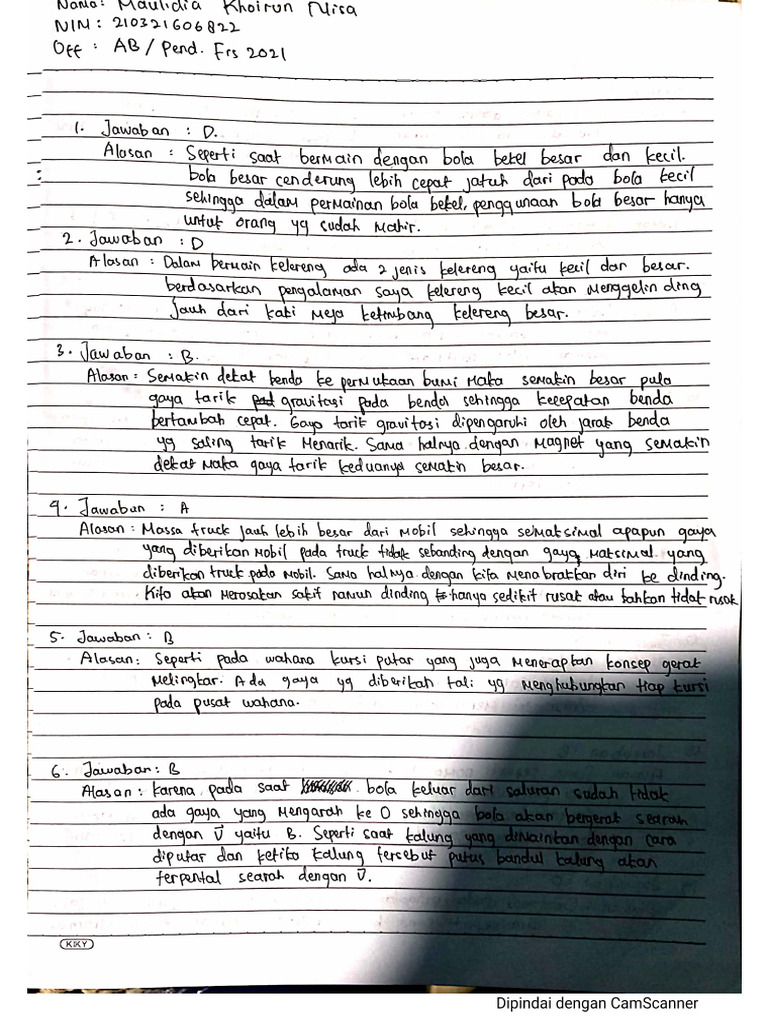 Nama: Maulidia Khoirun Nisa
NIM : 210321606822
Off : AB / Pend. Frs 2021
1. Jawaban : D.
Alasan : Seperti saat bermain dengan bola bekel besar dan kecil.
bola besar cenderung lebih cepat jatuh dari pada bola kecil
sehingga dalam permainan bola bekel, penggunaan bola besar hanya
untuk orang yg sudah mahir.
2. Jawaban : D
Alasan : Dalam bermain kelereng ada 2 jenis kelereng yaitu kecil dan besar.
berdasarkan pengalaman saya kelereng kecil akan menggelinding
jauh dari kaki meja ketimbang kelereng besar.
3. Jawaban : B.
Alasan : Semakin dekat benda ke permukaan bumi maka semakin besar pula
gaya tarik gravitasi pada benda sehingga kecepatan benda
bertambah cepat. Gaya tarik gravitasi dipengaruhi oleh jarak benda
yg saling tarik menarik. Sama halnya dengan magnet yang semakin
dekat maka gaya tarik keduanya semakin besar.
4. Jawaban : A
Alasan : Massa truck jauh lebih besar dari mobil sehingga semaksimal apapun gaya
yang diberikan mobil pada truck tidak sebanding dengan gaya maksimal yang
diberikan truck pada mobil. Sama halnya dengan kita menabrakkan diri ke dinding.
Kita akan merasakan sakit namun dinding hanya sedikit rusak atau bahkan tidak rusak
5. Jawaban : B
Alasan : Seperti pada wahana kursi putar yang juga menerapkan konsep gerak
melingkar. Ada gaya yg diberikan tali yg menghubungkan tiap kursi
pada pusat wahana.
6. Jawaban : B
Alasan : karena pada saat bola keluar dari saluran sudah tidak
ada gaya yang mengarah ke O sehingga bola akan bergerak searah
dengan v̄ yaitu B. Seperti saat kalung yang dimainkan dengan cara
diputar dan ketika kalung tersebut putus bandul kalung akan
terpental searah dengan v̄.
KIKY
Dipindai dengan CamScanner